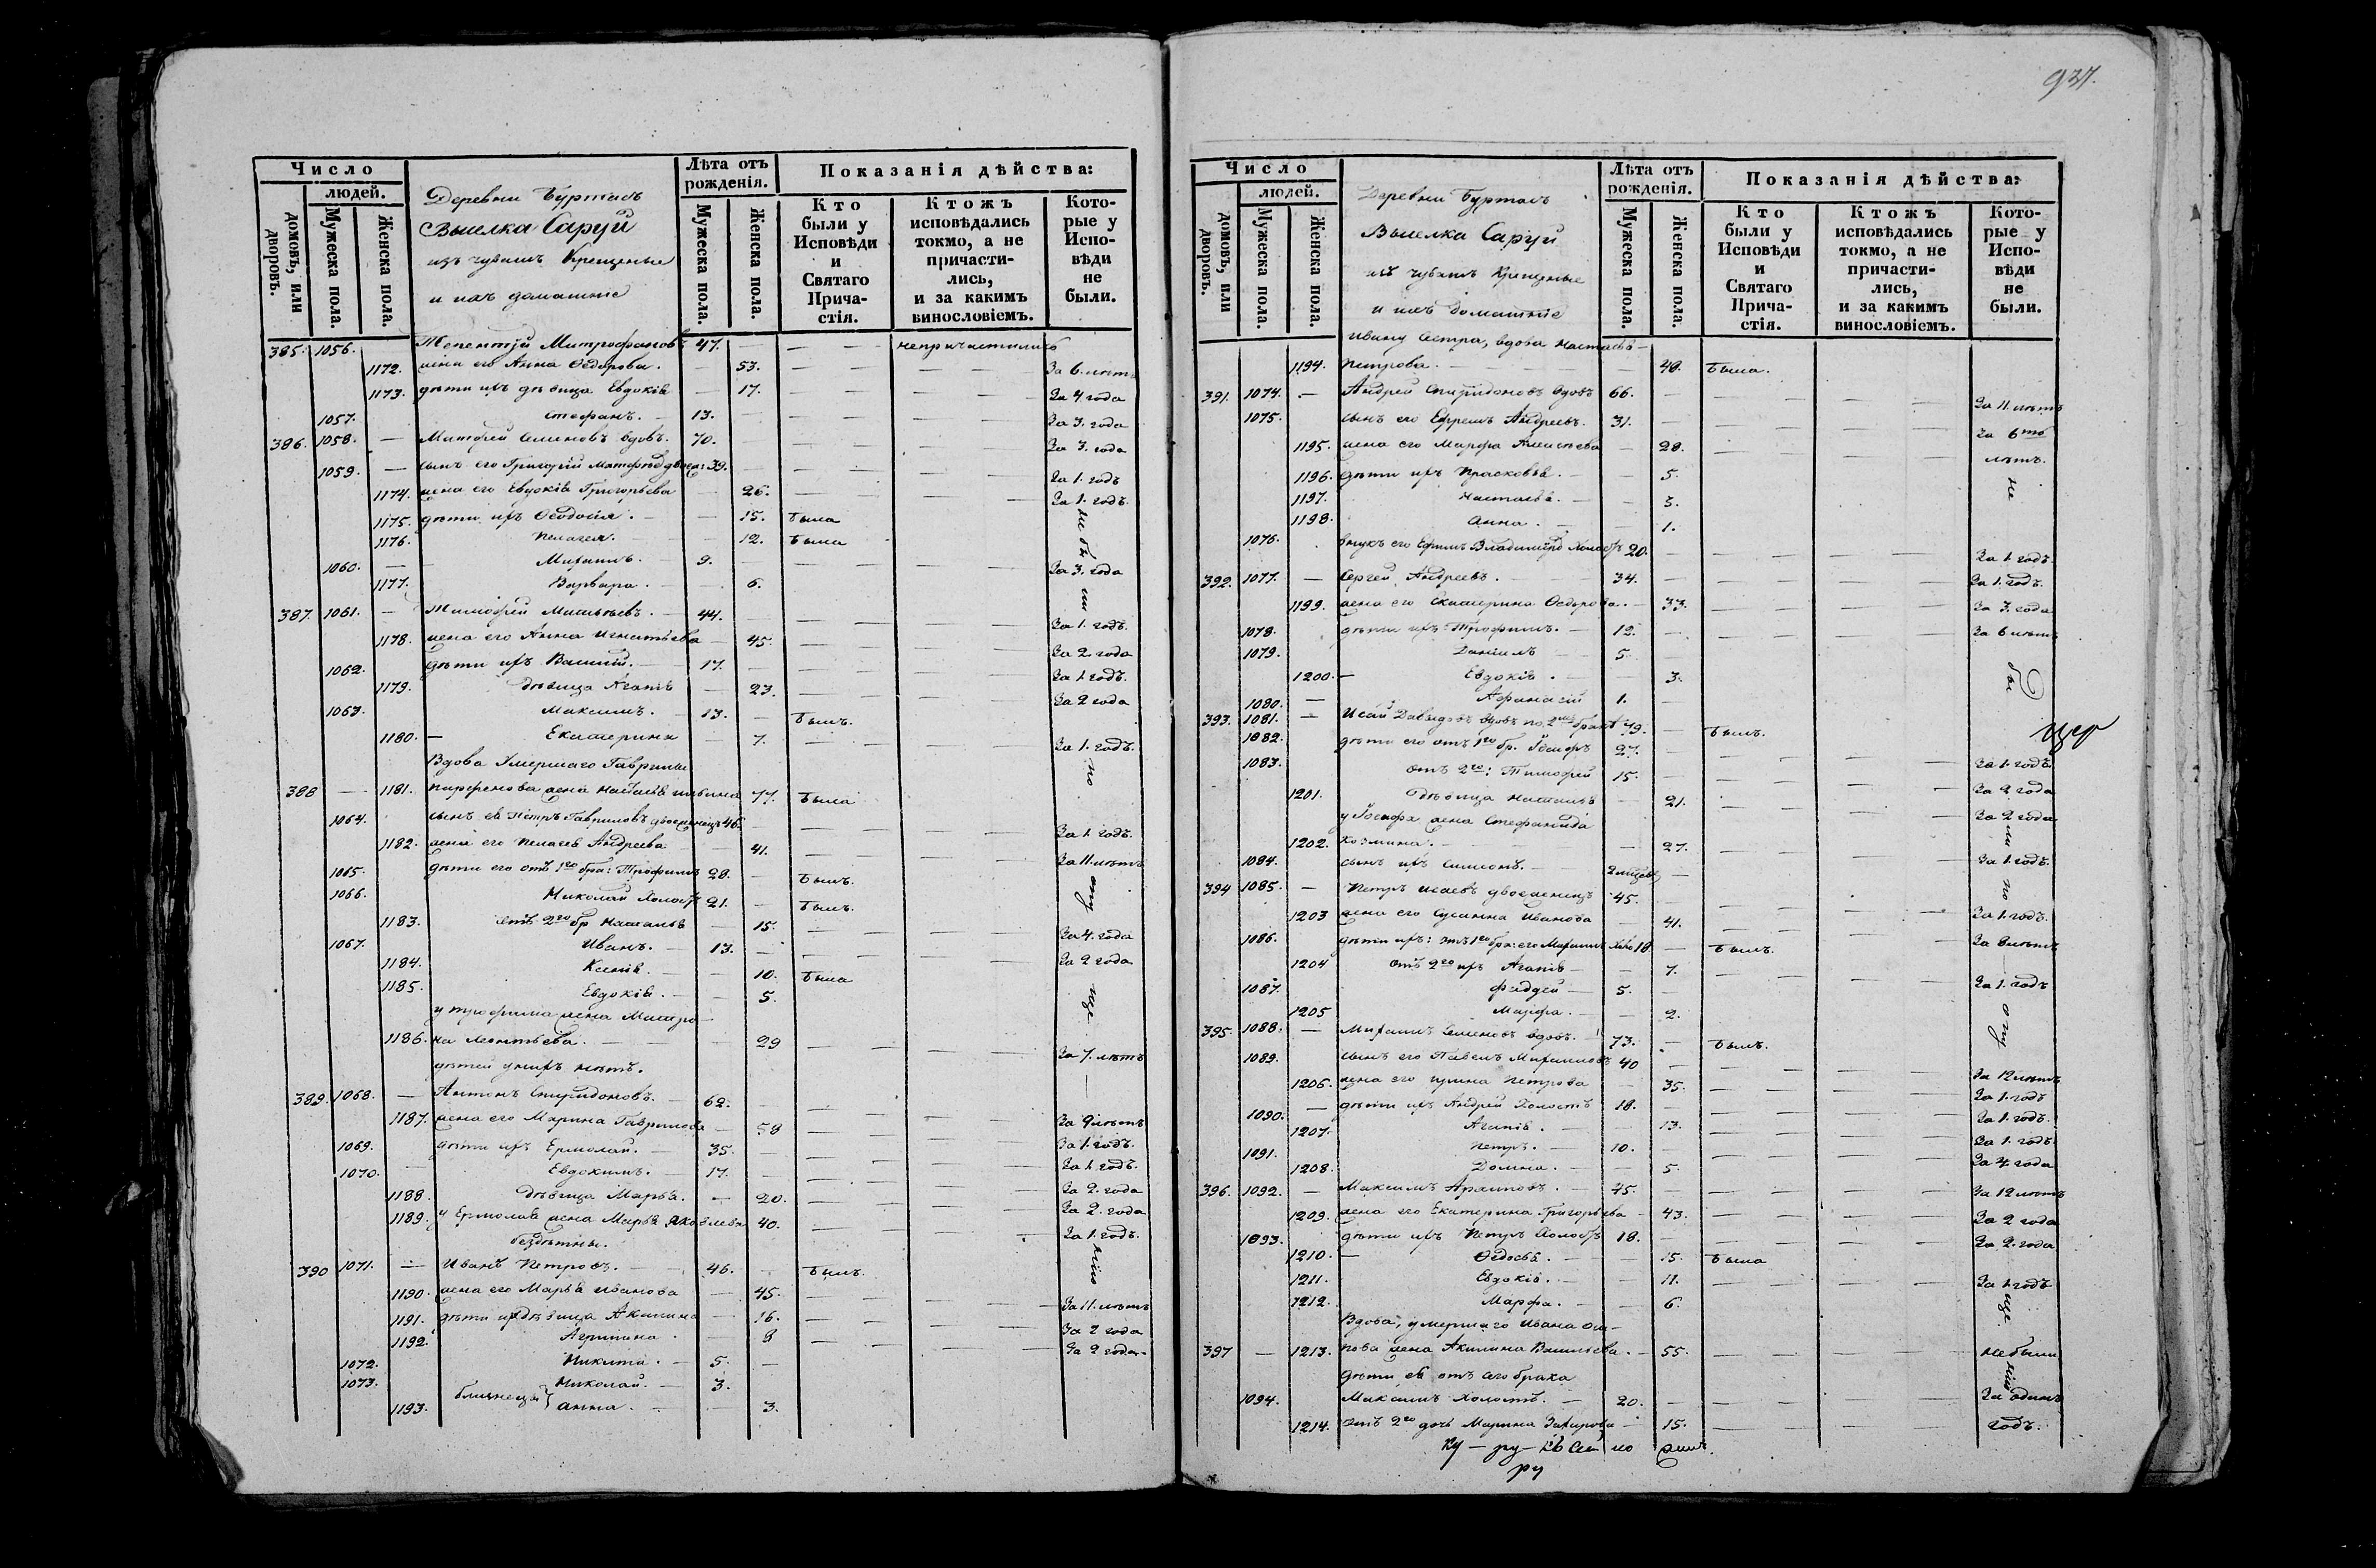 937.
Число
людей.
домовъ, или дворовъ.
Мужеска пола.
Женска пола.
Деревни Буртасъ
Выселка Саруй
изъ чувашъ крещеные
и ихъ домашніе
Лѣта отъ рожденія.
Мужеска пола.
Женска пола.
Показанія дѣйства:
Кто были у Исповѣди и Святаго Прича-стія.
Ктожъ исповѣдались токмо, а не причасти-лись, и за какимъ винословіемъ.
Кото-рые у Испо-вѣди не были.
385. 1056. Митрофановъ 47. — — непричастились
1172. жена его Анна Ѳедорова. — 53. — — За 6. лѣтъ
1173. дѣти ихъ дѣвица Евдокія — 17. — — За 4 года
1057. Стефанъ. — 13. — — За 3. года
386. 1058. — Матфей Семеновъ вдовъ. 70. — — За 3. года
1059. — сынъ его Григорій 39. — — За 1. годъ
1174. жена его Евдокія Григорьева — 26. — — За 1. годъ.
1175. дѣти ихъ Ѳеодосія. — 15. была
1176. Пелагея. — 12. была
1060. — 9. — — За 3. года
1177. Варвара. — 6.
387. 1061. — Тимофей 44. — — За 1. годъ.
1178. жена его Анна Игнатьева — 45. — — За 2. года
1062. дѣти ихъ Василій. — 17. — — За 1. годъ.
1179. дѣвица Агапія — 23. — — За 2 года
1063. Максимъ. — 13. — былъ.
1180. — Екатерина — 7. — — За 1. годъ.
Вдова Умершаго Гаврилы
388 — 1181. Парфенова жена 77. была
1064. сынъ ея Петръ Гавриловъ двоеженецъ 46. — — За 1. годъ.
1182. жена его Пелагея Андреева — 41. — — За 11. лѣтъ
1065. дѣти его отъ 1го бра: Трофимъ 28. — былъ.
1066. Николай Холостъ 21. — былъ.
1183. отъ 2го бр Наталья — 15. — — За 4. года
1067. Иванъ. — 13. — — За 2 года
1184. Ксенія. — 10. была
1185. Евдокія. — 5.
у Трофима жена Матро-
1186. на Леонтьева. — 29 — — За 7. лѣтъ
дѣтей у нихъ нѣтъ.
389. 1068. — Антонъ Спиридоновъ. — 62. — —
1187. жена его Марина Гаврилова — 58 — — За 9 лѣтъ
1069. дѣти ихъ Ермолай. — 35. — — За 1. годъ.
1070. Евдокимъ. — 17. — — За 1. годъ.
1188. дѣвица Марья. — 20. — — За 2. года
1189. у Ермолая жена Марья Яковлева 40. — — За 2. года
бездѣтны. За 1. годъ.
390 1071. — Иванъ Петровъ. — 46. — былъ.
1190. жена его Марья Иванова — 45. — — За 11. лѣтъ
1191. дѣти ихъ дѣвица Акилина — 16. — — За 2 года
1192. Агрипина. — 8 — — За 2 года.
1072. Никита. — 5. —
1073. Николай. — 3.
близнецы}
1193. Анна. — 3.
Число
людей.
домовъ, или дворовъ.
Мужеска пола.
Женска пола.
Деревни Буртасъ
Выселка Саруй
изъ чувашъ крещеные
и ихъ домашніе
Лѣта отъ рожденія.
Мужеска пола.
Женска пола.
Показанія дѣйства:
Кто были у Исповѣди и Святаго Прича-стія.
Ктожъ исповѣдались токмо, а не причасти-лись, и за какимъ винословіемъ.
Кото-рые у Испо-вѣди не были.
Ивану Сестра, вдова Настасья
1194. Петрова. — 48. была.
391. 1074. — Андрей Спиридоновъ вдовъ 66. — — За 11 лѣтъ
1075. сынъ его Ефремъ Андреевъ. 31. — — За 6ть
1195. жена его Марфа — 28. — — лѣтъ.
1196. дѣти ихъ Прасковья. — 5.
1197. Настасья. — 3.
1198. Анна. — 1.
1076. внукъ его Ефимъ Холостъ 20. — — За 1. годъ
392. 1077. — Сергей Андреевъ. 34. — — За 1. годъ.
1199. жена его Екатерина Ѳедорова. — 33. — — За 3. года
1078. дѣти ихъ Трофимъ. — 12. — — За 6 лѣтъ
1079. Даніилъ — 5.
1200. — Евдокія. — 3.
1080. — Афанасій 1.
393. 1081. — Исай Давыдовъ вдовъ по 2мъ бракѣ 49. — былъ.
1082. дѣти его отъ 1го бр. Іосифъ 27. — — За 1. годъ.
1083. отъ 2го: Тимофей 15. — — За 2 года
1201. дѣвица Наталья — 21. — — За 2 года
у Іосифа жена Стефанида
1202. Козмина. — 27. — — За 1. годъ.
1084. сынъ ихъ Симеонъ. —
394 1085. — Петръ Исаевъ двоеженецъ 45. — — За 1. годъ.
1203 жена его Сусанна Иванова — 41. — — За 8 лѣтъ
1086. дѣти ихъ: отъ 1го бра: его 18. — былъ.
1204 отъ 2го ихъ Агапія — 7. — — За 1. годъ
1087. Фаддей — 5. —
1205 Марфа. — 2.
395. 1088. — Семеновъ вдовъ. 73. — былъ.
1089. сынъ его Павелъ 40 — — За 12 лѣтъ
1206. жена его Ирина Петрова — 35. — — За 1. годъ
1090. — дѣти ихъ Андрей Холостъ 18. — — За 1. годъ.
1207. Агапія. — 13. — — За 1. годъ
1091. Петръ. — 10. — — За 4. года
1208. Домна. — 5.
396. 1092. — Максимъ Архиповъ. — 45. — — За 12 лѣтъ
1209. жена его Екатерина Григорьева — 43. — — За 2 года
1093. дѣти ихъ Петръ Холостъ 18. — — За 2. года
1210. — Ѳедосья. — 15. была
1211. Евдокія. — 11. — — За 1 годъ
1212. Марфа. — 6.
Вдова, умершаго Ивана
397 — 1213. жена Акилина Васильева. — 55. — — не были
дѣти ея отъ сего брака
1094. Максимъ Холостъ. — 20. — — За одинъ
1214. отъ 2го дочь Марина — 15. — — годъ.